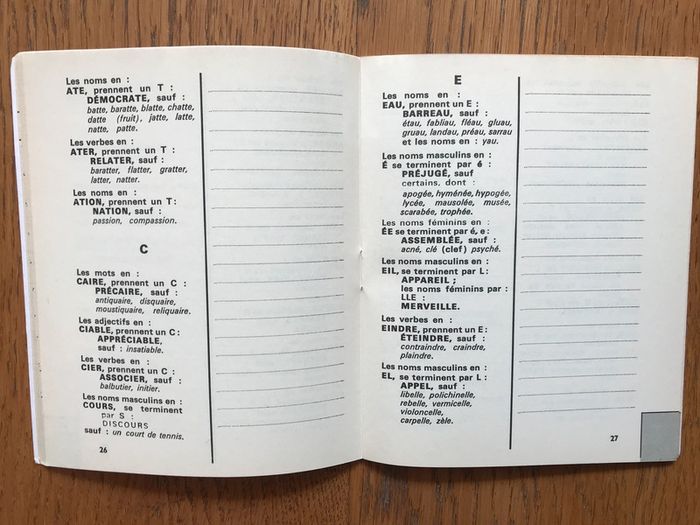 Les noms en :
ATE, prennent un T :
DÉMOCRATE, sauf :
batte, baratte, blatte, chatte,
datte (fruit), jatte, latte,
natte, patte.
Les verbes en :
ATER, prennent un T :
RELATER, sauf :
baratter, flatter, gratter,
latter, natter.
Les noms en :
ATION, prennent un T :
NATION, sauf :
passion, compassion.
C
Les mots en :
CAIRE, prennent un C :
PRÉCAIRE, sauf :
antiquaire, disquaire,
moustiquaire, reliquaire.
Les adjectifs en :
CIABLE, prennent un C :
APPRÉCIABLE,
sauf : insatiable.
Les verbes en :
CIER, prennent un C :
ASSOCIER, sauf :
balbutier, initier.
Les noms masculins en :
COURS, se terminent
par S :
DISCOURS
sauf : un court de tennis.
26
E
Les noms en :
EAU, prennent un E :
BARREAU, sauf :
étau, fabliau, fléau, gluau,
gruau, landau, préau, sarrau
et les noms en : yau.
Les noms masculins en :
É se terminent par é :
PRÉJUGÉ, sauf
certains, dont :
apogée, hyménée, hypogée,
lycée, mausolée, musée,
scarabée, trophée.
Les noms féminins en :
ÉE se terminent par é, e :
ASSEMBLÉE, sauf :
acné, clé (clef) psyché.
Les noms masculins en :
EIL, se terminent par L :
APPAREIL ;
les noms féminins par :
LLE :
MERVEILLE.
Les verbes en :
EINDRE, prennent un E :
ÉTEINDRE, sauf :
contraindre, craindre,
plaindre.
Les noms masculins en :
EL, se terminent par L :
APPEL, sauf :
libelle, polichinelle,
rebelle, vermicelle,
violoncelle,
carpelle, zèle.
27